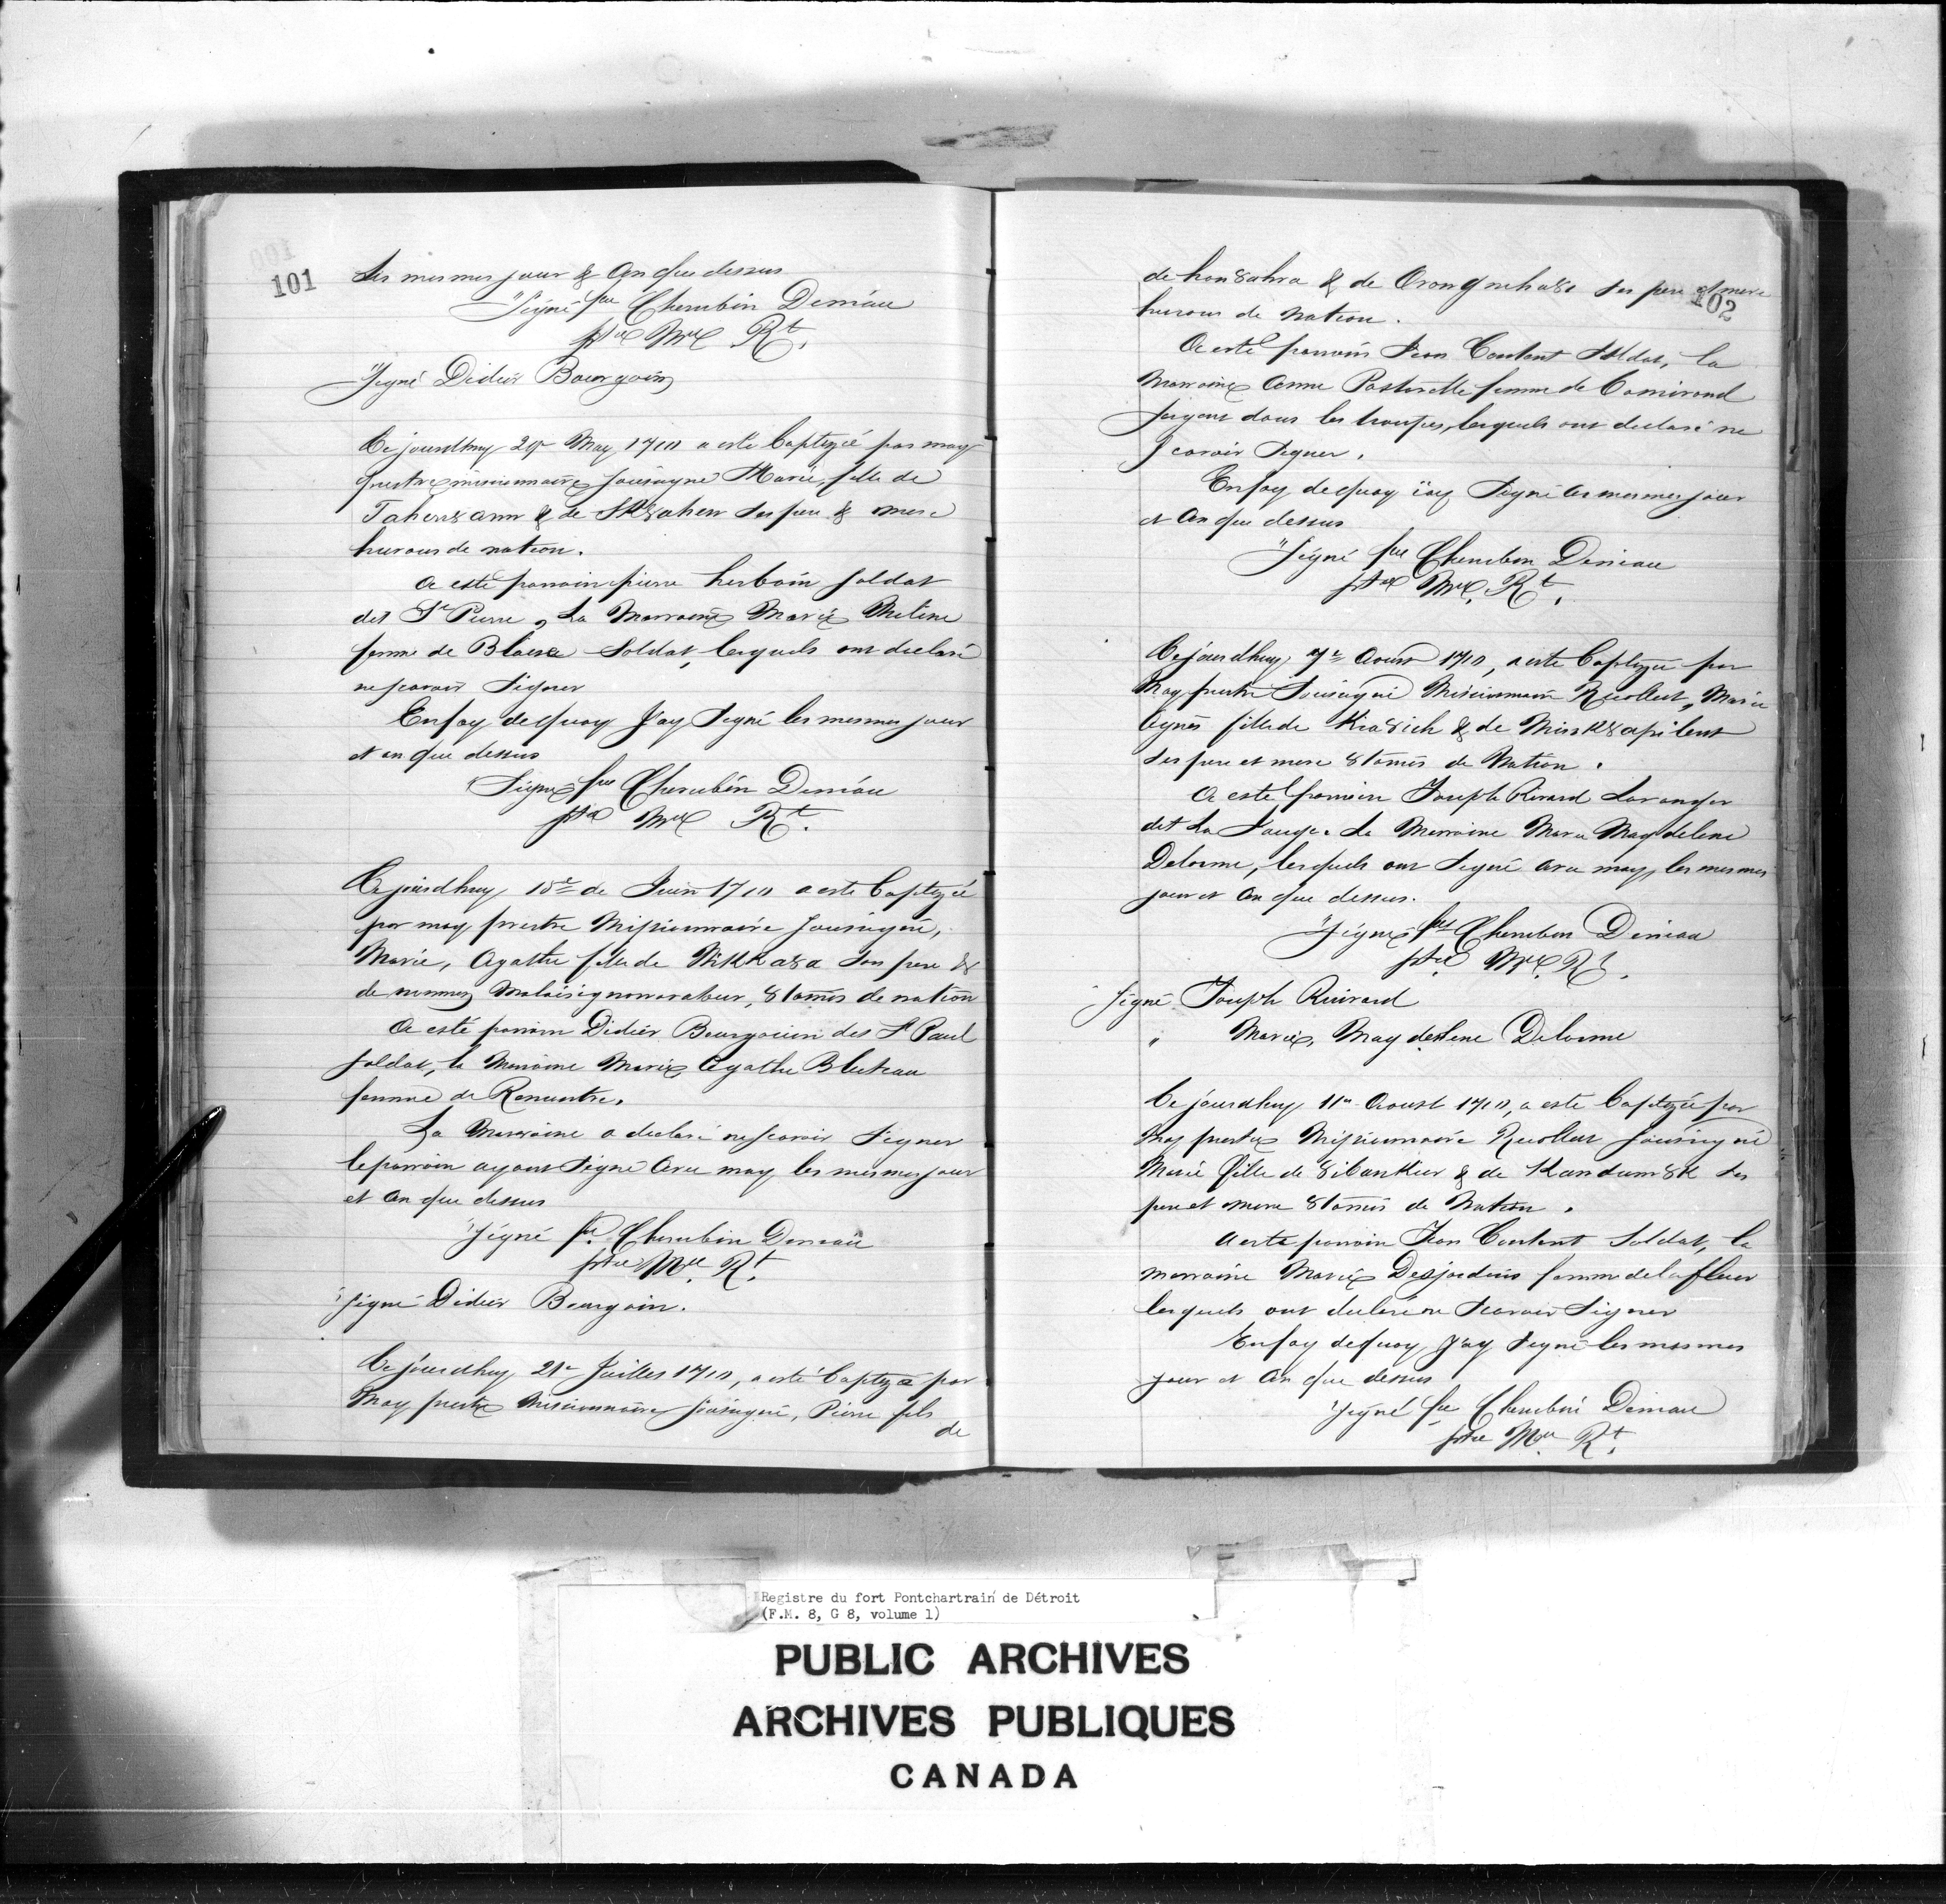 101
Les mesmes jour & an que dessus
"Signé fre Cherubin Deniau
ptre Mre Rt.
"Signé Didier Bourgoin
Ce jourdhuy 29e May 1710 a esté baptizée par moy
prestre missionnaire sousigné Marie, fille de
& de ses pere & mere
hurons de nation.
A esté parrain pierre herboin soldat
dit St Pierre, La Marraine Marie Metine
femme de Blaise Soldat, lesquels ont declaré
ne scavoir Signer
En foy de quoy J'ay Signé les mesmes jour
et an que dessus
"Signé fre Cherubin Deniau
ptre Mre Rt.
Ce jourdhuy 18e de Juin 1710 a esté baptizée
par moy prestre Missionnaire sousigné,
Marie, Agathe fille de son pere &
de 8tamis de nation
A esté parrain Didier Bourgouin dit St Paul
soldat, la Maraine Marie Agathe Bluteau
femme de Rencontre.
La Marraine a declaré ne scavoir Signer
le parrain ayant Signé avec moy les mesmes jour
et an que dessus
"Signé fre Cherubin Deniau
ptre Mre Rt.
"Signé Didier Bourgoin.
Ce jourdhuy 21e Juillet 1710, a esté baptizé par
Moy prestre Missionnaire sousigné, Pierre fils
de
102
de hon8ahra & de ses pere et mere
hurons de Nation.
A esté parrain Jean Contant Soldat, la
Marraine Anne Pastorelle femme de Comirand
serjent dans les troupes, lesquels ont declaré ne
scavoir Signer.
En foy de quoy iay Signé les mesmes jour
et An que dessus
"Signé fre Cherubin Deniau
ptre Mre Rt.
Ce jourdhuy 7e Aoust 1710, a esté baptizée par
Moy prestre Sousigné Missionnaire Recollect, Marie
Agnès fille de Kia8ich & de
ses pere et mere 8tamis de Nation.
A esté parrain Joseph Rivard Loranger
dit La Marraine Marie Magdelene
Delorme, lesquels ont Signé avec moy, les mesmes
jour et An que dessus.
"Signé fre Cherubin Deniau
ptre Mre Rt.
"Signé Joseph Ruivard
" Marie, Magdellene Delorme
Ce jourdhuy 11e Aoust 1710, a esté baptizée par
Moy prestre Missionnaire Recollect sousigné
Marie fille de 8ibanKier & de ses
pere et mere 8tamis de Nation.
A esté parrain Jean Contant Soldat, la
marraine Marie Desjardins femme de lafleur
lesquels ont declaré ne scavoir Signer
En foy de quoy J'ay Signé les mesmes
jour et An que dessus
"Signé fre Cherubin Deniau
ptre Mre Rt.
Registre du fort Pontchartrain de Détroit
(F.M. 8, G 8, volume 1)
PUBLIC ARCHIVES
ARCHIVES PUBLIQUES
CANADA